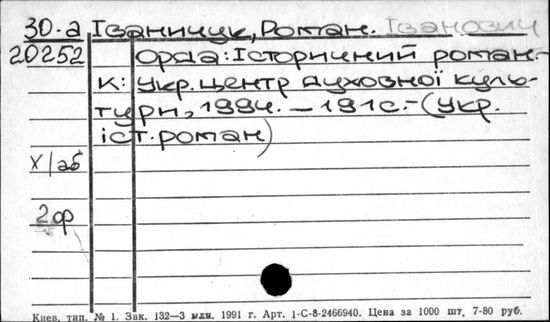 30-а Іваничук, Роман. Іванович
20252 Орда: Історичний роман.-
К: Укр. центр духовної куль-
тури, 1994. – 191с.- (Укр.
іст. роман)
Х/аб
2ор
Киев, тип. № 1. Зак. 132—3 млн. 1991 г. Арт. 1-С-8-2466940. Цена за 1000 шт. 7-80 руб.